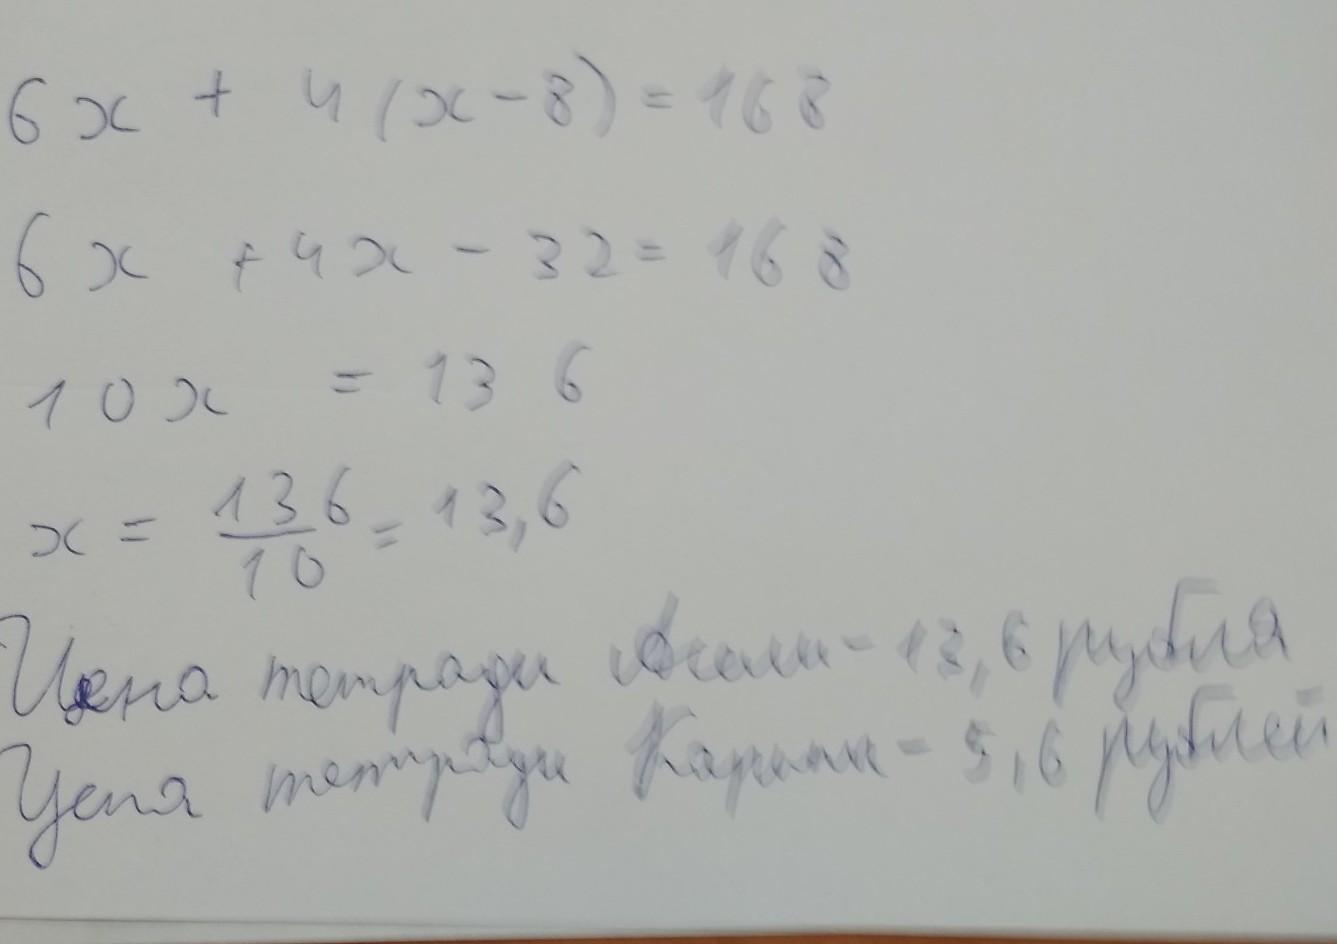 6x + 4(x-8) = 168
6x + 4x - 32 = 168
10x = 136
x = 136/10 = 13,6
Цена тетради Асели - 13,6 рубля
Цена тетради Карины - 5,6 рублей